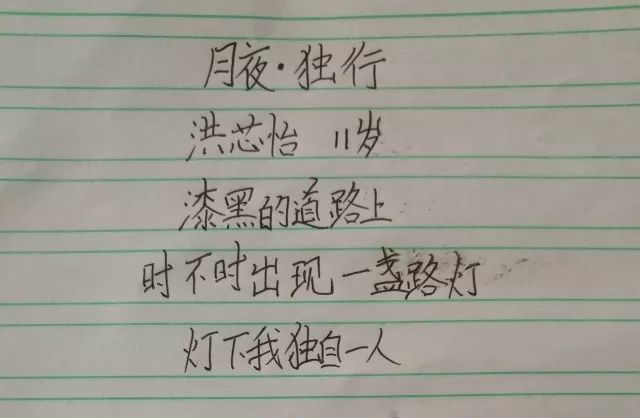 月夜·独行
洪芯怡 11岁
漆黑的道路上
时不时出现一盏路灯
灯下我独自一人